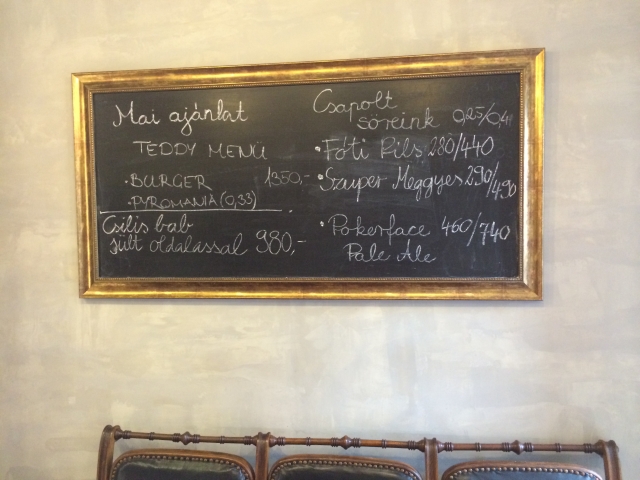 Mai ajánlat
TEDDY MENÜ
• BURGER 1350,-
• PYROMANIA (0,33)
Csilis bab
sült oldalassal 980,-
Csapolt
söreink 0,25/0,4l
• Fóti Pils 280/440
• Szuper Meggyes 290/490
• Pokerface 460/740
Pale Ale